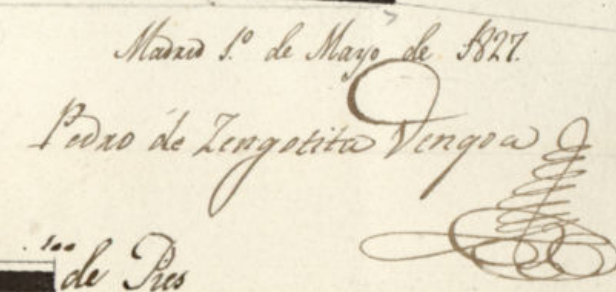 Madrid 1.º de Mayo de 1827.
Pedro de Zengotita Vengoa
de Pies